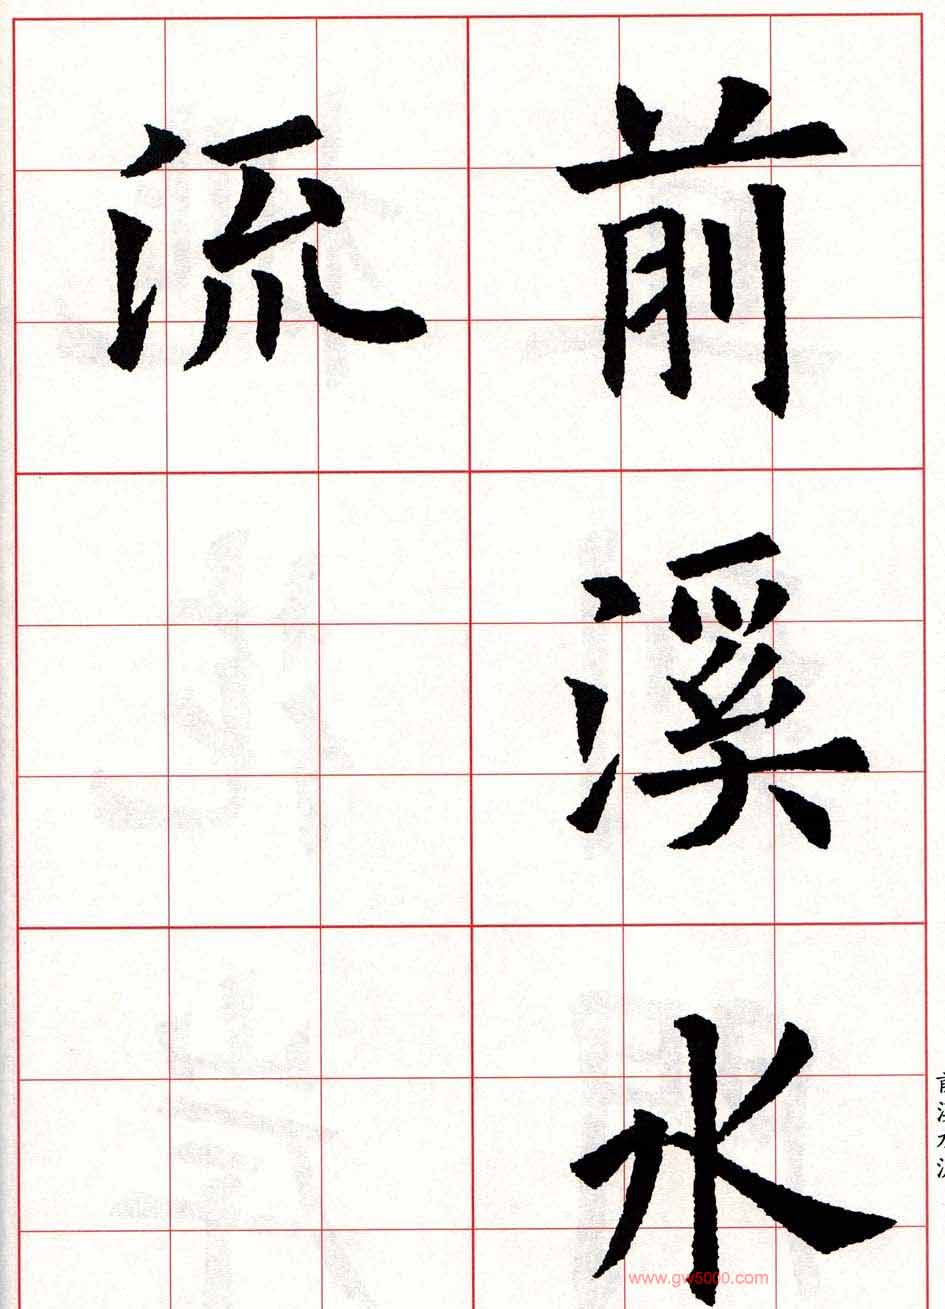 前溪水
流
www.gw5000.com